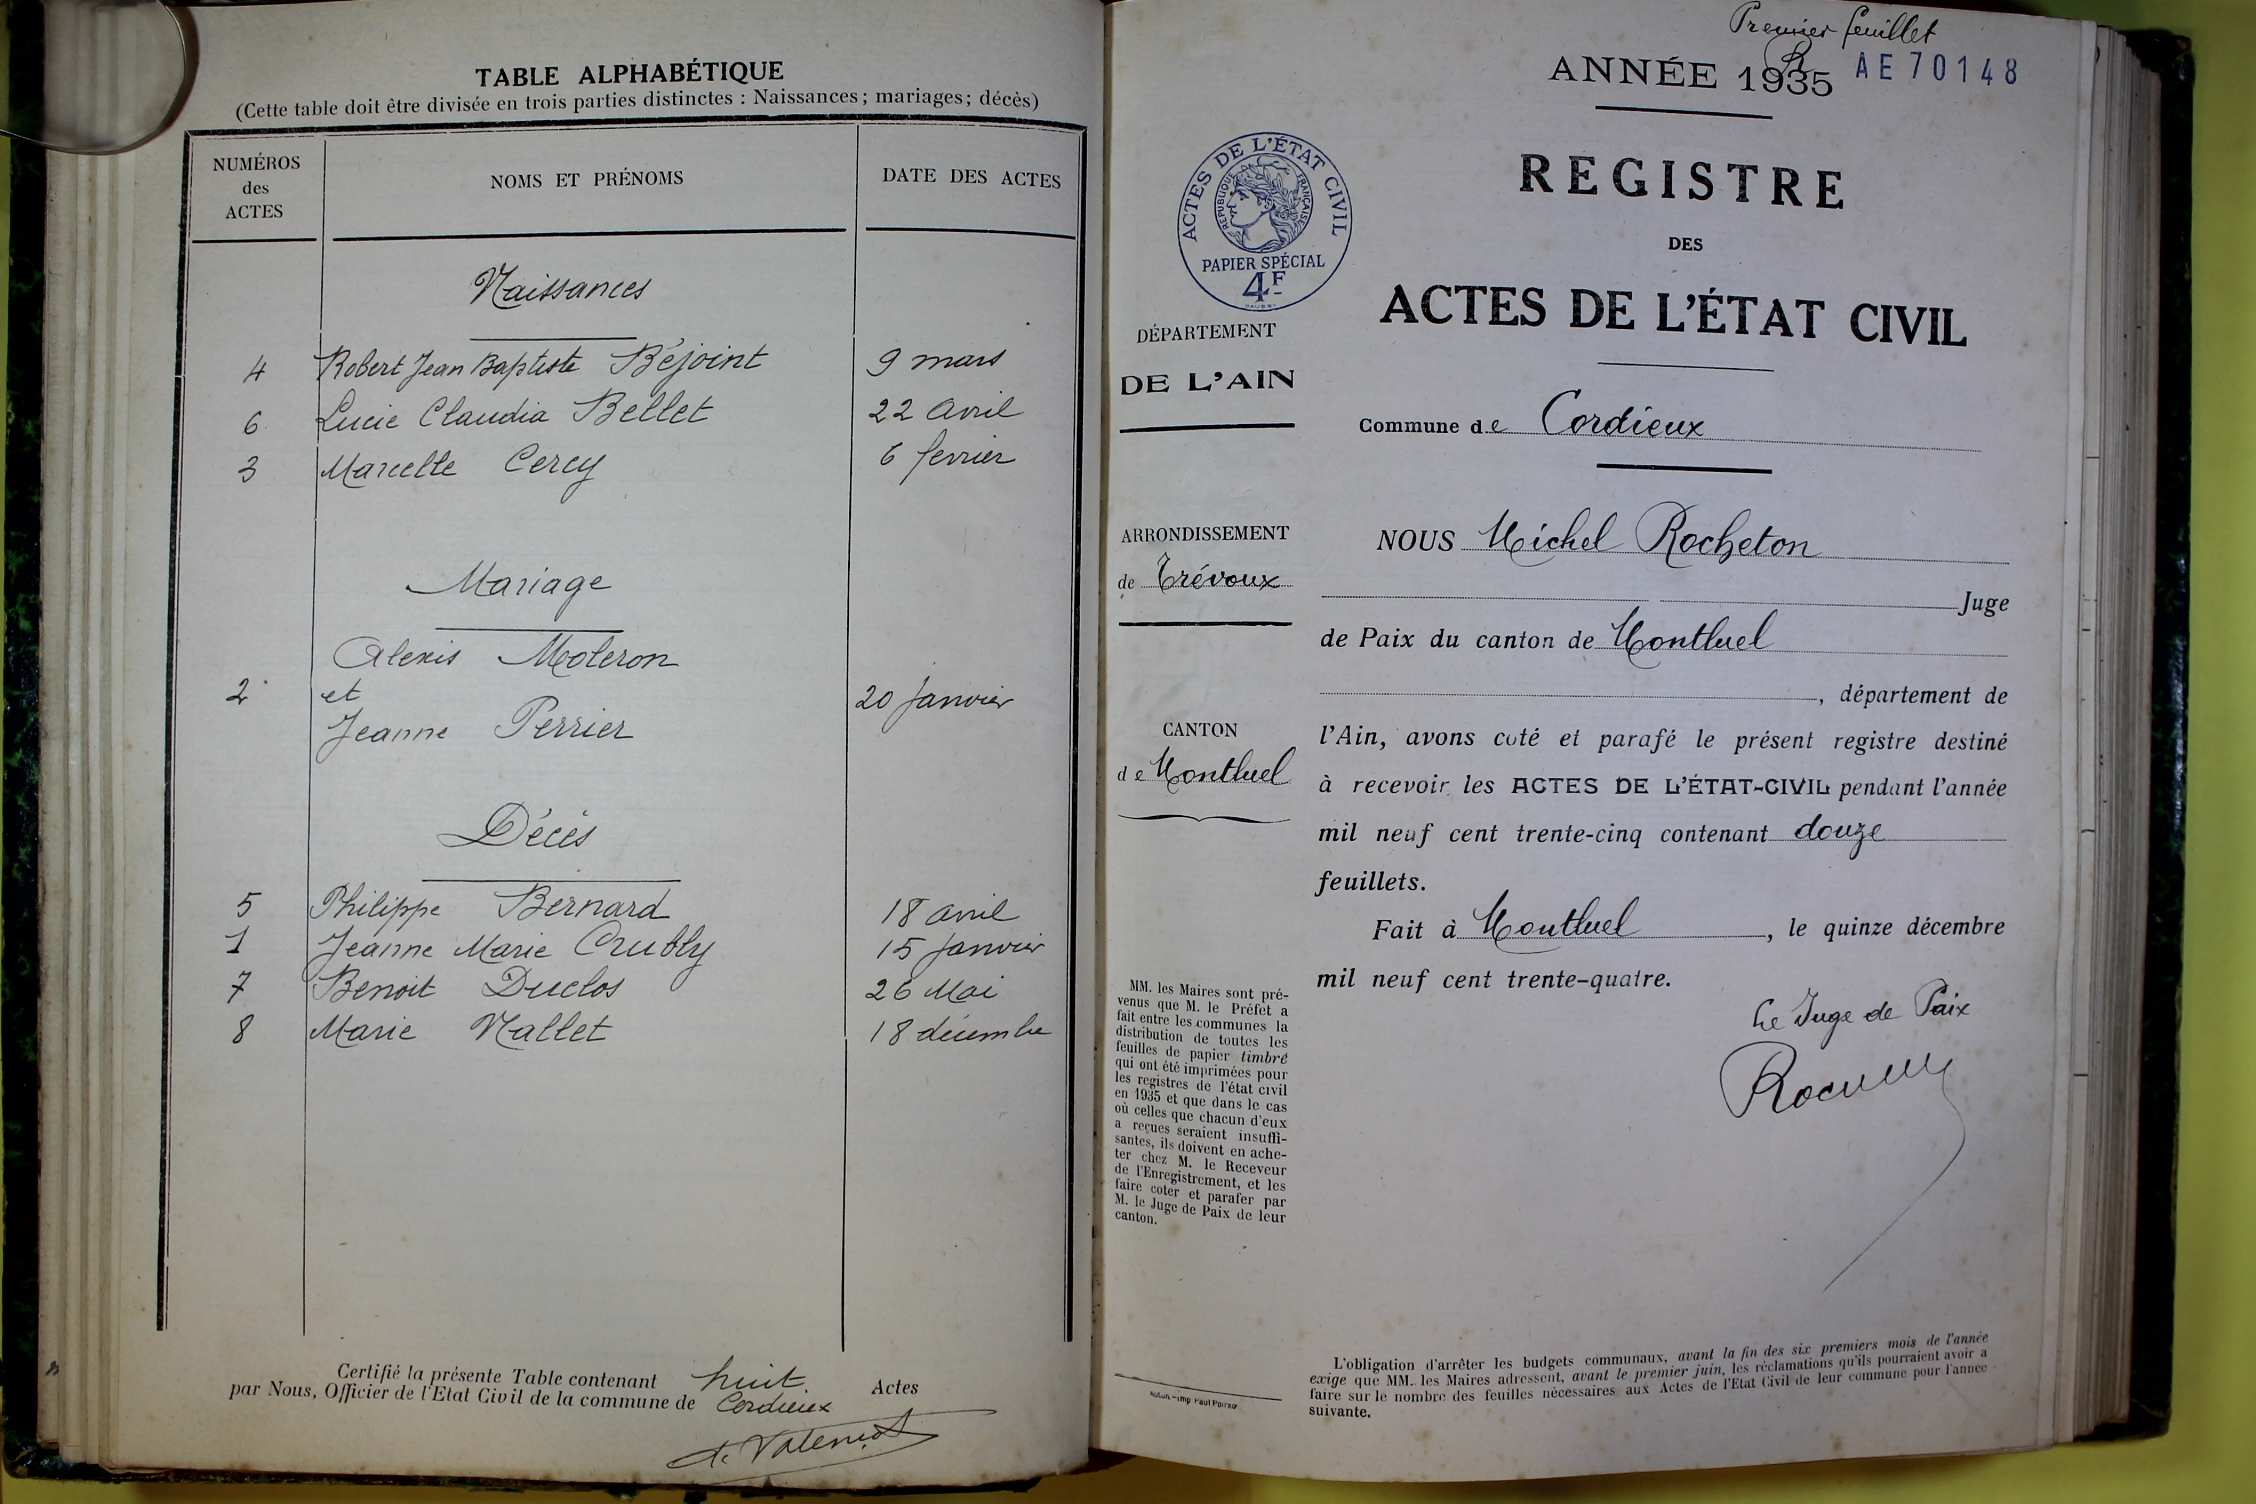 TABLE ALPHABÉTIQUE
(Cette table doit être divisée en trois parties distinctes : Naissances ; mariages ; décès)
NUMÉROS des ACTES
NOMS ET PRÉNOMS
DATE DES ACTES
Naissances
4 Robert Jean Baptiste Béjoint 9 mars
6 Lucie Claudia Bellet 22 avril
3 Marcelle Cercy 6 fevrier
Mariage
Alexis Moleron
2 et 20 Janvier
Jeanne Perrier
Décès
5 Philippe Bernard 18 avril
1 Jeanne Marie Crubly 15 Janvier
7 Benoit Duclos 26 Mai
8 Marie Nallet 18 décembre
Certifié la présente Table contenant huit Actes
par Nous, Officier de l'Etat Civil de la commune de Cordieux
Premier feuillet
ANNÉE 1935 AE 70148
ACTES DE L'ÉTAT CIVIL
RÉPUBLIQUE FRANÇAISE
PAPIER SPÉCIAL
4F
REGISTRE
DES
ACTES DE L'ÉTAT CIVIL
DÉPARTEMENT
DE L'AIN
Commune de Cordieux
ARRONDISSEMENT
de Trévoux
CANTON
de Montluel
NOUS Michel Rocheton
Juge
de Paix du canton de Montluel
, département de
l'Ain, avons coté et parafé le présent registre destiné
à recevoir les ACTES DE L'ÉTAT-CIVIL pendant l'année
mil neuf cent trente-cinq contenant douze
feuillets.
Fait à Montluel, le quinze décembre
mil neuf cent trente-quatre.
Le Juge de Paix
MM. les Maires sont pré-
venus que M. le Préfet a
fait entre les communes la
distribution de toutes les
feuilles de papier timbré
qui ont été imprimées pour
les registres de l'état civil
en 1935 et que dans le cas
où celles que chacun d'eux
a reçues seraient insuffi-
santes, ils doivent en ache-
ter chez M. le Receveur
de l'Enregistrement, et les
faire coter et parafer par
M. le Juge de Paix de leur
canton.
L'obligation d'arrêter les budgets communaux, avant la fin des six premiers mois de l'année
exige que MM. les Maires adressent, avant le premier juin, les réclamations qu'ils pourraient avoir a
faire sur le nombre des feuilles nécessaires aux Actes de l'Etat Civil de leur commune pour l'année
suivante.